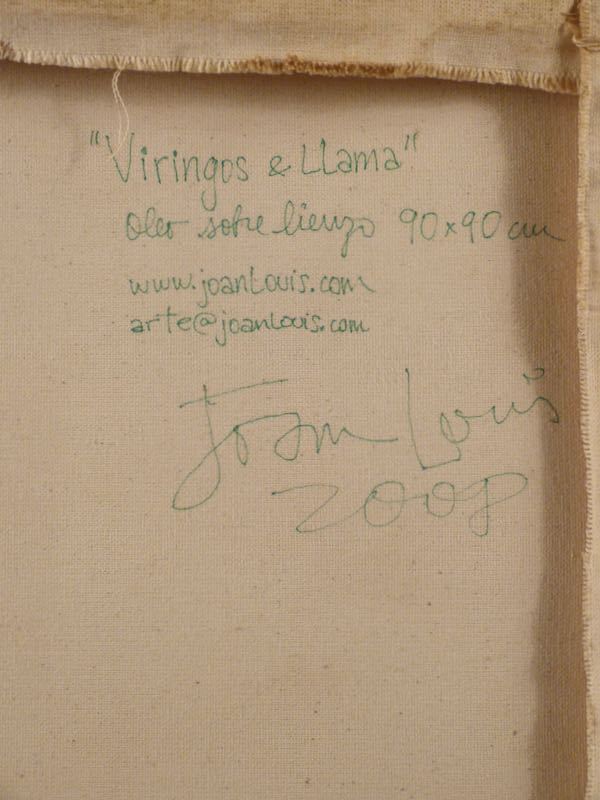 "Viringos & Llama"
Oleo sobre lienzo 90x90 cm
www.joanLouis.com
arte@joanLouis.com
Joan Louis
2008